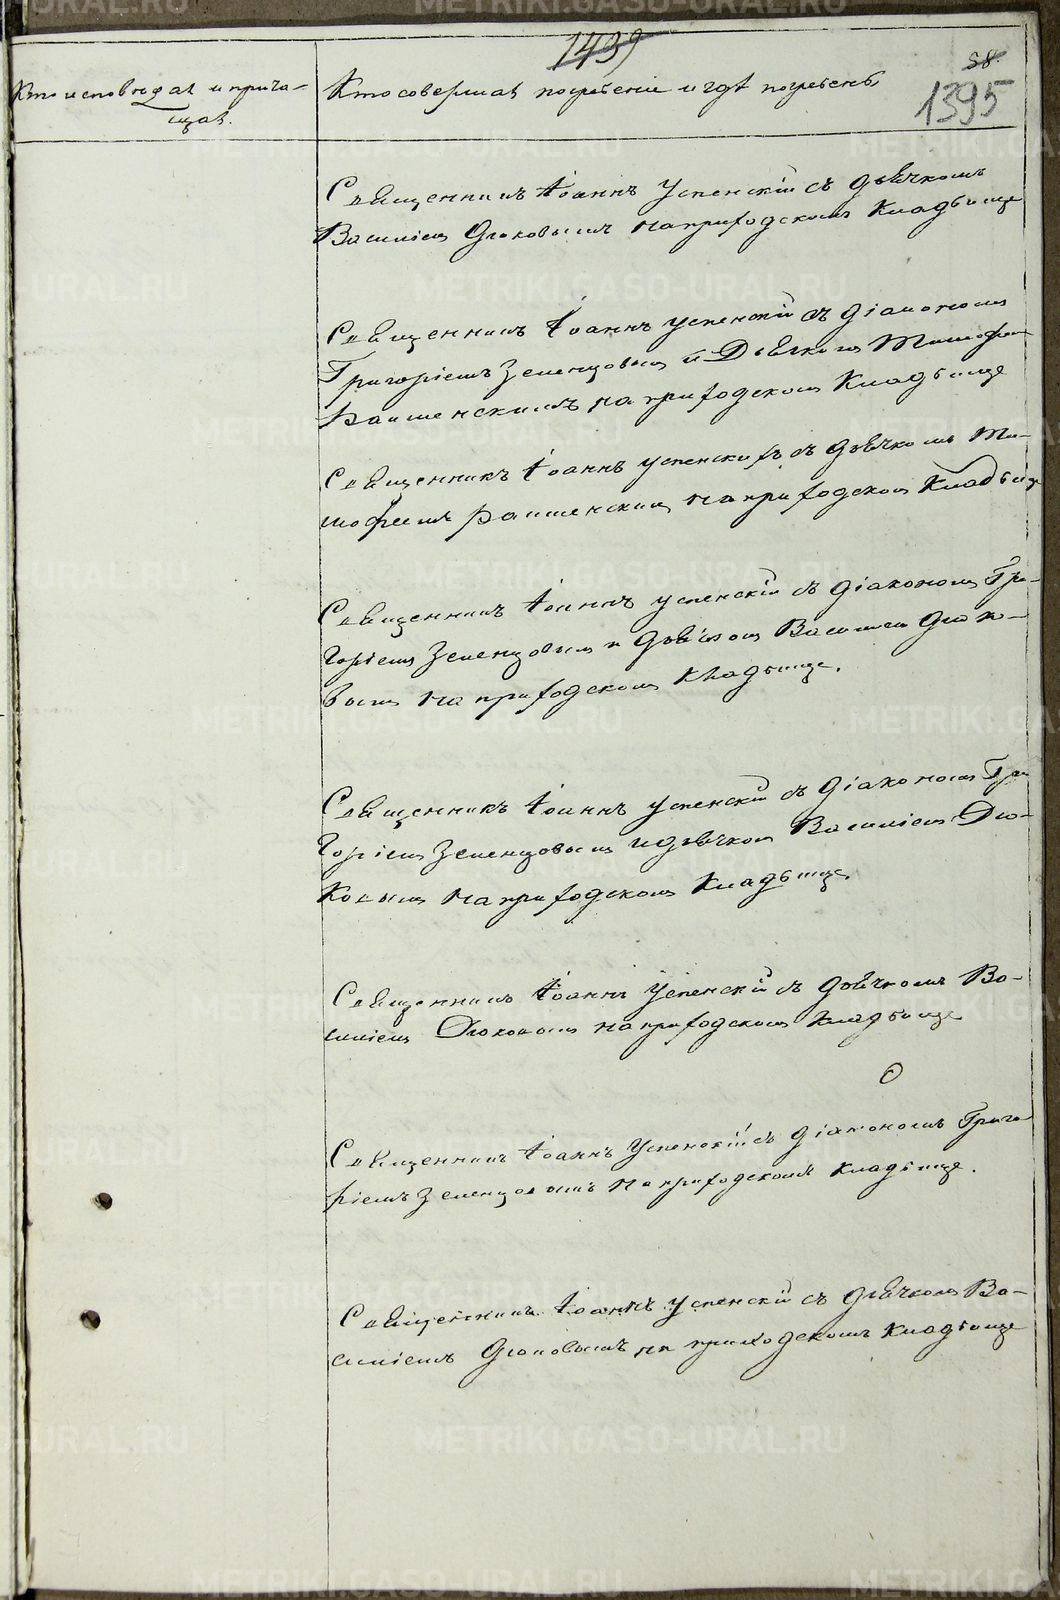 1439
58.
1395
Кто исповѣдал и прича-
щал.
Кто совершал погребеніе и гдѣ погребенъ
Священникъ Іоаннъ Успенскій съ дьячкомъ
Василіемъ Дюковымъ на приходскомъ кладбище
Священникъ Іоаннъ Успенскій съ діакономъ
Григоріемъ Зеленцовым и Дьячком Тимофеем
на приходском Кладбище
Священникъ Іоаннъ Успенскій съ дьячкомъ Ти-
мофеемъ на приходском Кладбище
Священникъ Іоаннъ Успенскій съ діакономъ Гри-
горіемъ Зеленцовым и дьячком Василіем Дюко-
вым на приходском кладбище.
Священникъ Іоаннъ Успенскій съ діакономъ Гри
горіем Зеленцовым и дьячком Василіем Дю-
ковым на приходском Кладбище.
Священникъ Іоаннъ Успенскій съ дьячкомъ Ва-
силіем Дюковым на приходском Кладбище
Священникъ Іоаннъ Успенскій съ діакономъ Григо
ріемъ Зеленцовымъ на приходскомъ кладбище.
Священникъ Іоаннъ Успенскій съ дьячкомъ Ва-
силіемъ Дюковымъ на приходскомъ кладбище
METRIKI.GASO-URAL.RU